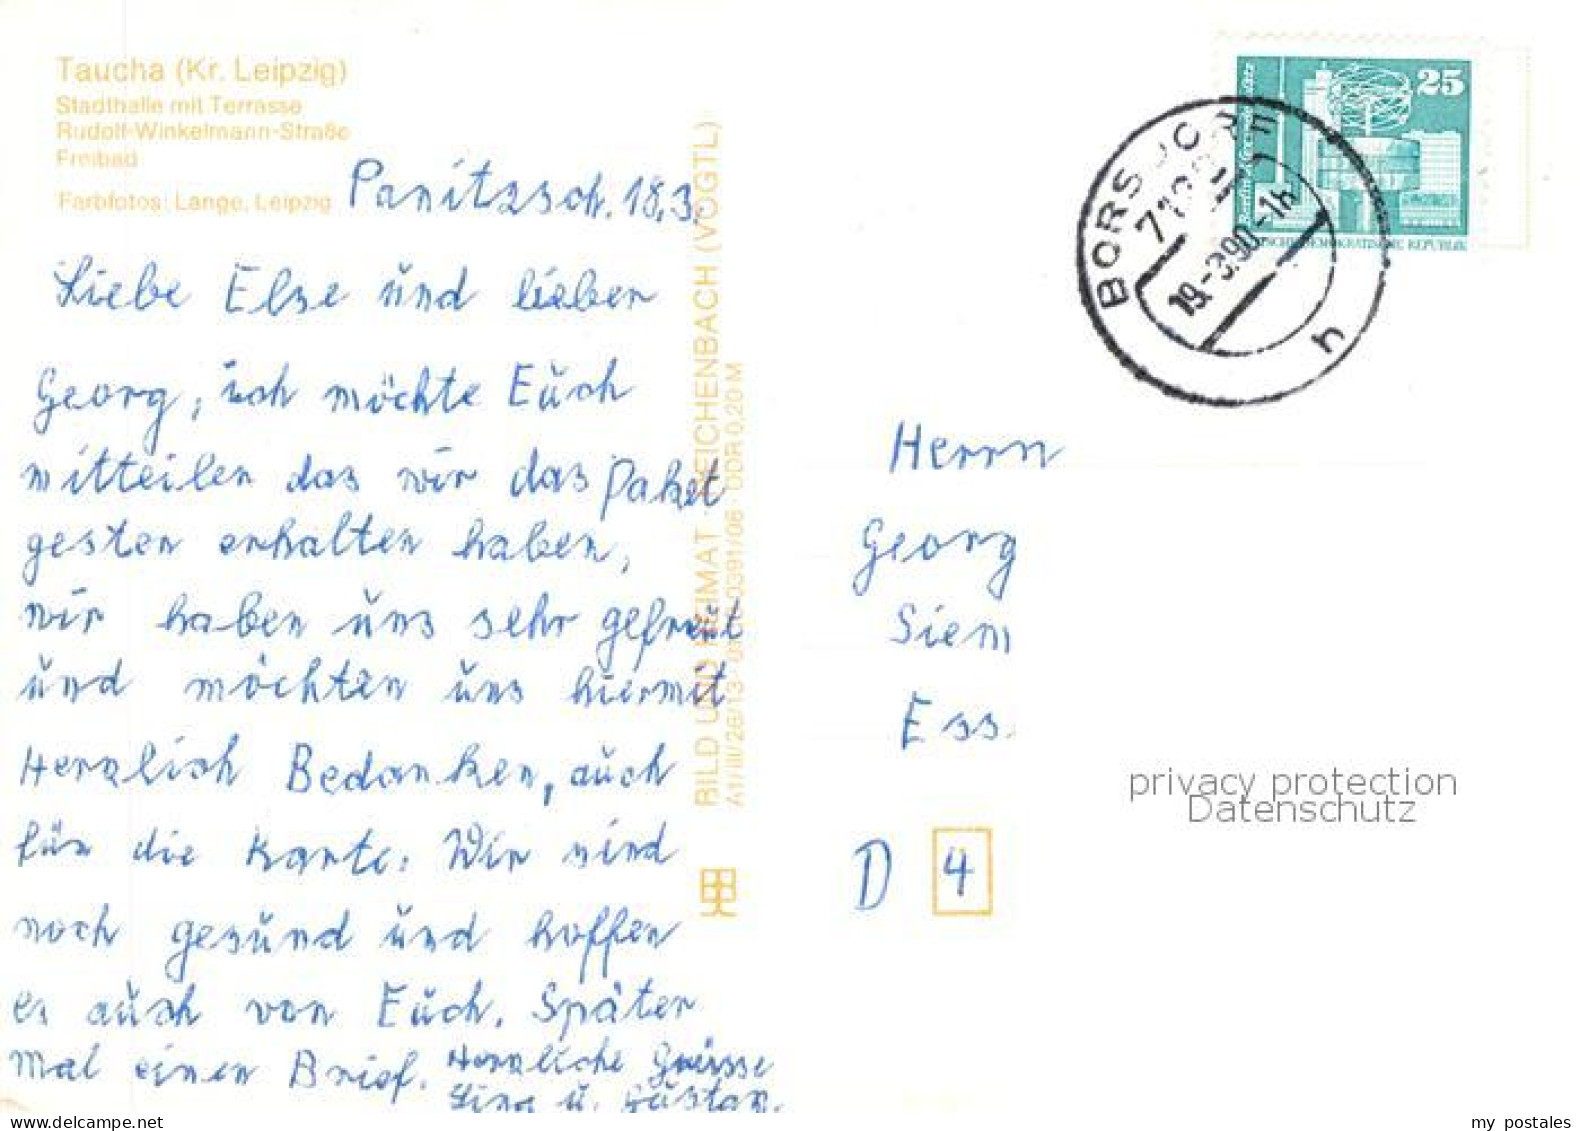 Taucha (Kr. Leipzig)
Stadthalle mit Terrasse
Rudolf-Winkelmann-Straße
Freibad
Farbfotos: Lange, Leipzig
Panitzsch. 18.3.
Liebe Else und lieber
Georg, ich möchte Euch
mitteilen das wir das Paket
gestern erhalten haben,
wir haben uns sehr gefreut
und möchten uns hiermit
Herzlich Bedanken, auch
für die Karte. Wir sind
noch gesund und hoffen
es auch von Euch. Später
Mal einen Brief. Herzliche Grüsse
Lina u. Gustav.
BILD UND HEIMAT REICHENBACH (VOGTL)
A1/III/26/13 DDR 0,20 M
25
Berlin
DEUTSCHE DEMOKRATISCHE REPUBLIK
BORSDORF
19.-3.90
h
Herrn
Georg
Siem
Ess
D 4
privacy protection
Datenschutz
my postales